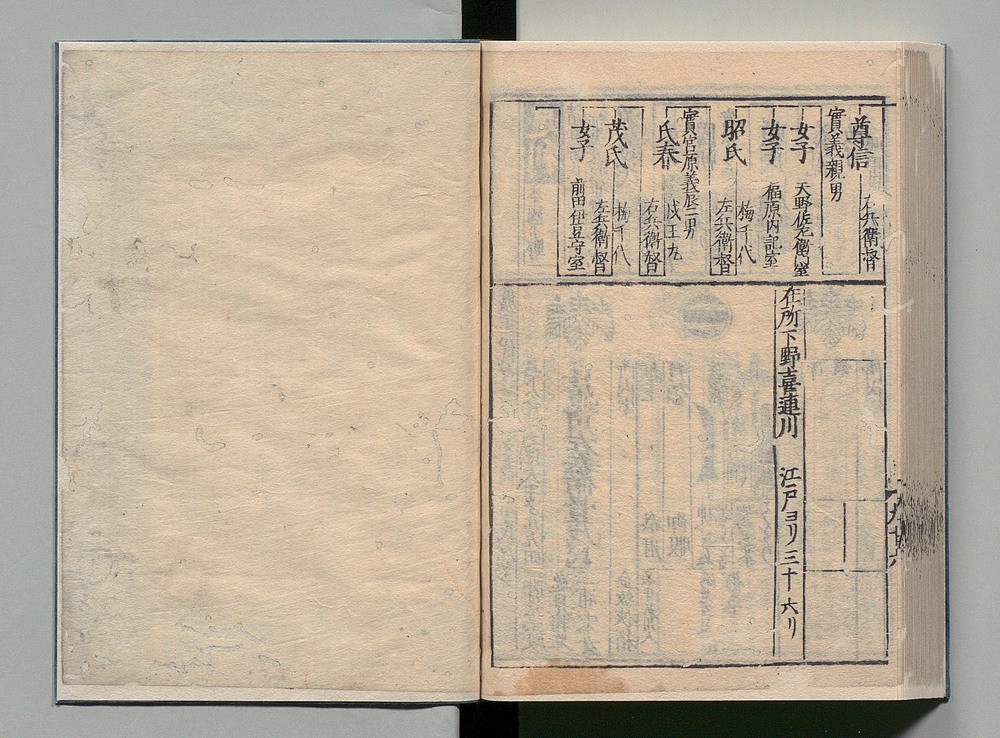 尊信
右兵衛督
實義親男
女子
天野佐左衛門室
女子
福原内記室
昭氏
梅千代
左兵衛督
實宮原義辰二男
氏春
戌王丸
右兵衛督
茂氏
梅千代
左兵衛督
女子
前田伊豆守室
在所下野喜連川　江戸ヨリ三十六リ
九十六